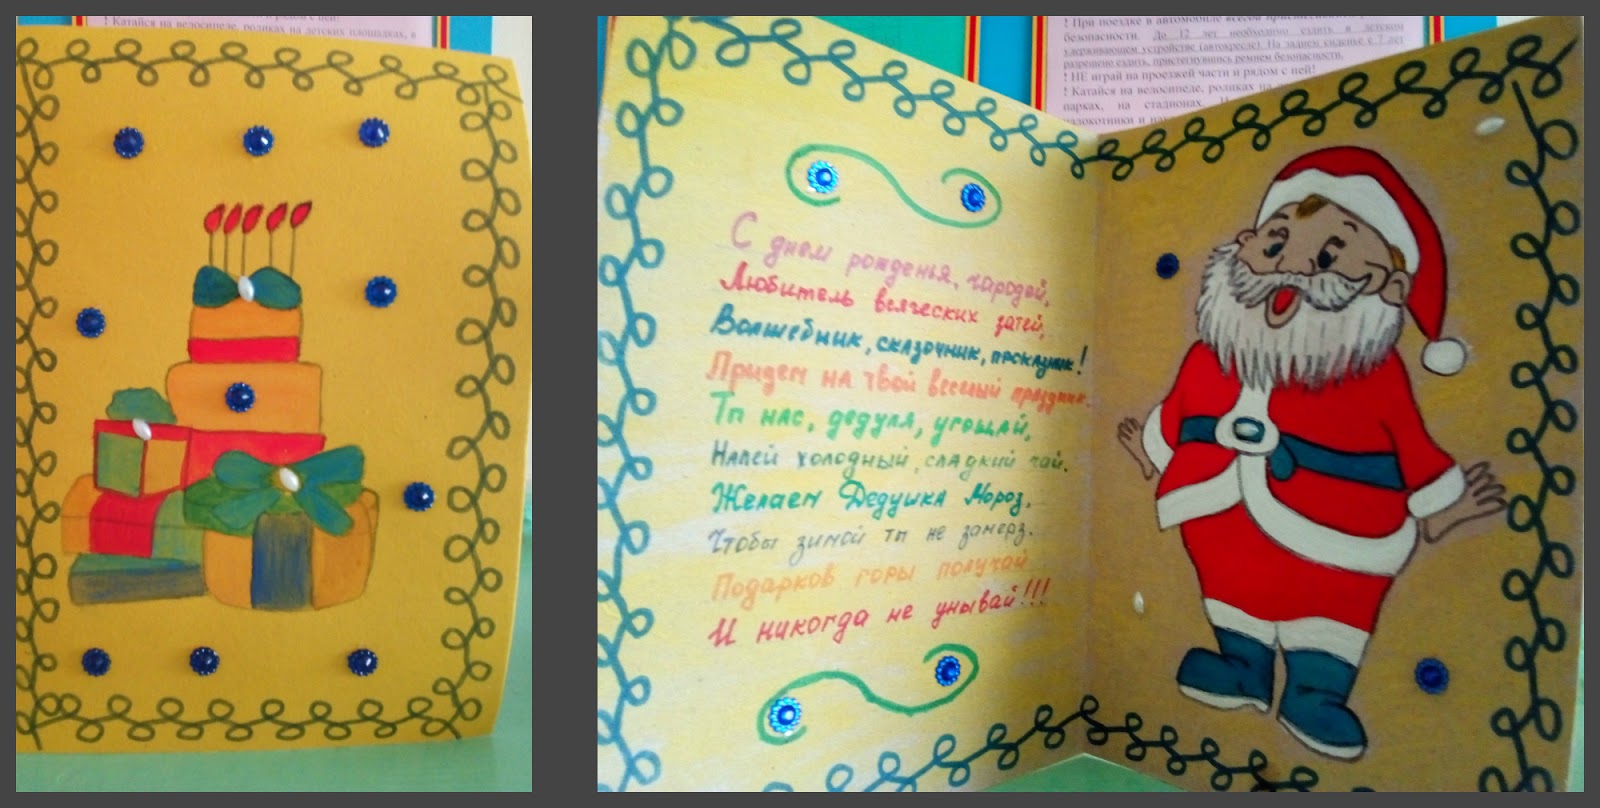 ! Катайся на велосипеде, роликах на детских площадках, в
! При поездке в автомобиле всегда
безопасности. До 12 лет необходимо ездить в детском
удерживающем устройстве (автокресле). На заднем сиденье с 7 лет
разрешено ездить, пристегнувшись ремнем безопасности.
! НЕ играй на проезжей части и рядом с ней!
! Катайся на велосипеде, роликах на
парках, на стадионах.
С днем рожденья, чародей,
Любитель всяческих затей,
Волшебник, сказочник, проказник!
Придем на твой веселый праздник.
Ты нас, дедуля, угощай,
Налей холодный, сладкий чай.
Желаем Дедушка Мороз,
Чтобы зимой ты не замерз.
Подарков горы получай
И никогда не унывай!!!